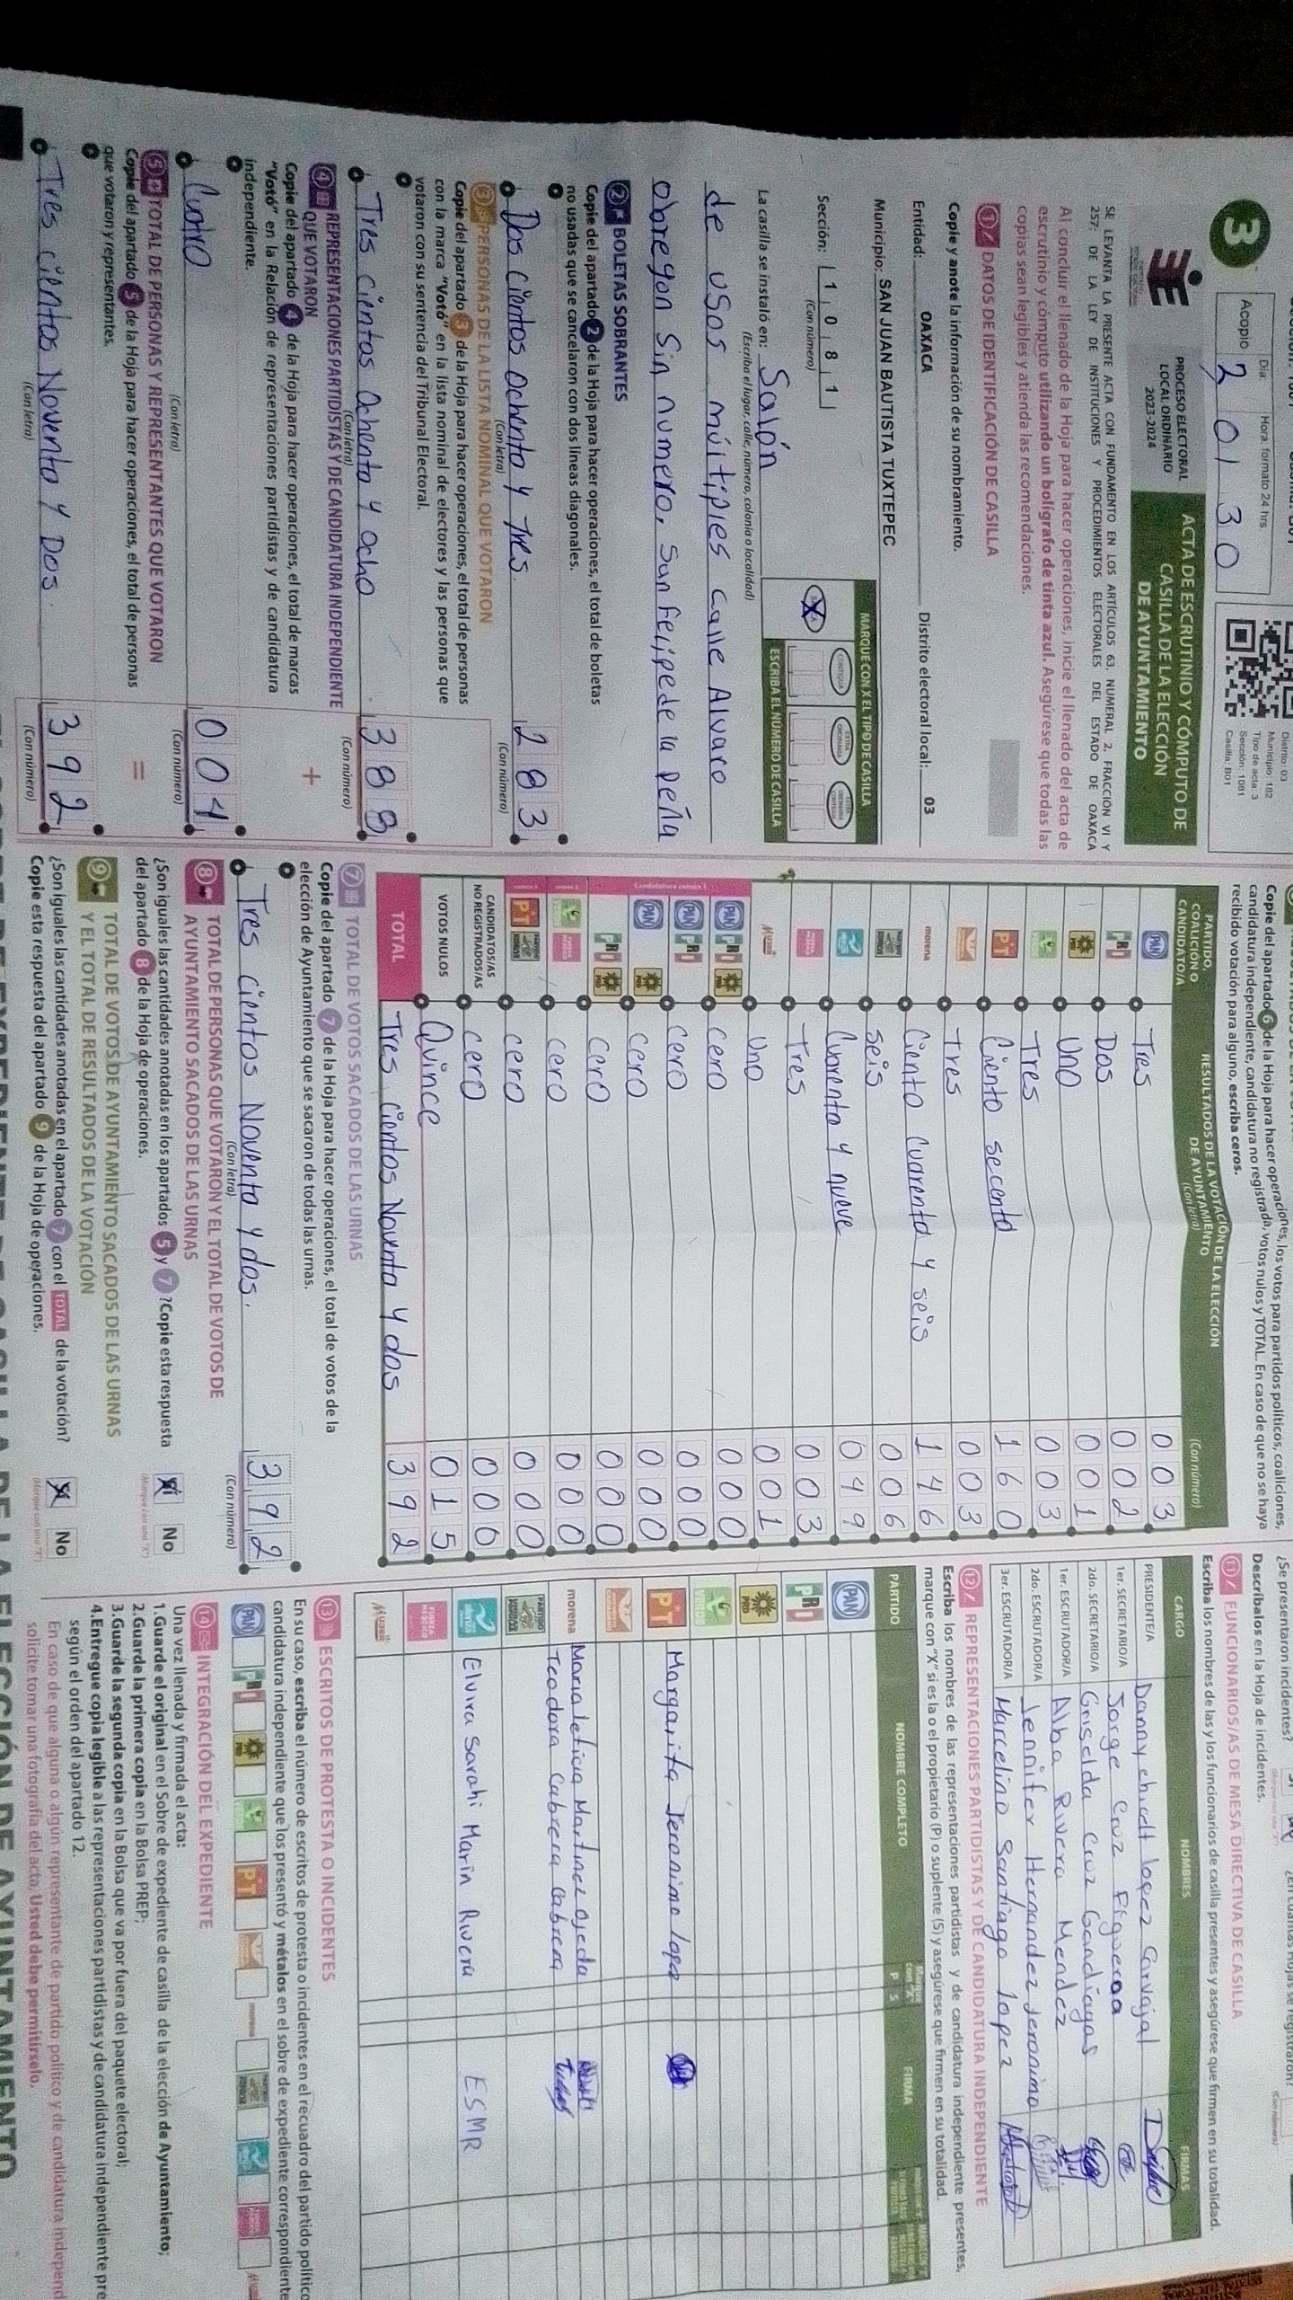 3
Acopio
Día:
Hora: formato 24 hrs.
2 01 30
Distrito: 03
Municipio: 182
Tipo de acta: 3
Sección: 1081
Casilla: B01
PROCESO ELECTORAL
LOCAL ORDINARIO
2023-2024
ACTA DE ESCRUTINIO Y CÓMPUTO DE
CASILLA DE LA ELECCIÓN
DE AYUNTAMIENTO
SE LEVANTA LA PRESENTE ACTA CON FUNDAMENTO EN LOS ARTÍCULOS 63, NUMERAL 2, FRACCIÓN VI Y
257; DE LA LEY DE INSTITUCIONES Y PROCEDIMIENTOS ELECTORALES DEL ESTADO DE OAXACA
Al concluir el llenado de la Hoja para hacer operaciones, inicie el llenado del acta de
escrutinio y cómputo utilizando un bolígrafo de tinta azul. Asegúrese que todas las
copias sean legibles y atienda las recomendaciones.
1 DATOS DE IDENTIFICACIÓN DE CASILLA
Copie y anote la información de su nombramiento.
Entidad: OAXACA Distrito electoral local: 03
Municipio: SAN JUAN BAUTISTA TUXTEPEC
MARQUE CON X EL TIPO DE CASILLA
Sección: 1 0 8 1
(Con número)
X
ESCRIBA EL NÚMERO DE CASILLA
La casilla se instaló en: Salón
(Escriba el lugar, calle, número, colonia o localidad)
de usos múltiples calle Alvaro
obregon Sin numero, San Felipe de la Peña
2 BOLETAS SOBRANTES
Copie del apartado 2 de la Hoja para hacer operaciones, el total de boletas
no usadas que se cancelaron con dos líneas diagonales.
Dos cientos ochenta y tres. 2 8 3
(Con letra) (Con número)
3 PERSONAS DE LA LISTA NOMINAL QUE VOTARON
Copie del apartado 3 de la Hoja para hacer operaciones, el total de personas
con la marca "Votó" en la lista nominal de electores y las personas que
votaron con su sentencia del Tribunal Electoral.
Tres cientos ochenta y ocho 3 8 8
(Con letra) (Con número)
4 REPRESENTACIONES PARTIDISTAS Y DE CANDIDATURA INDEPENDIENTE
QUE VOTARON
Copie del apartado 4 de la Hoja para hacer operaciones, el total de marcas
"Votó" en la Relación de representaciones partidistas y de candidatura
independiente.
+
Cuatro 0 0 4
(Con letra) (Con número)
5 TOTAL DE PERSONAS Y REPRESENTANTES QUE VOTARON
Copie del apartado 5 de la Hoja para hacer operaciones, el total de personas
que votaron y representantes.
=
Tres cientos Noventa y Dos. 3 9 2
(Con letra) (Con número)
Copie del apartado 6 de la Hoja para hacer operaciones, los votos para partidos políticos, coaliciones,
candidatura independiente, candidatura no registrada, votos nulos y TOTAL. En caso de que no se haya
recibido votación para alguno, escriba ceros.
PARTIDO,
COALICIÓN O
CANDIDATO/A
RESULTADOS DE LA VOTACIÓN DE LA ELECCIÓN
DE AYUNTAMIENTO
(Con letra)
(Con número)
PAN Tres 0 0 3
PRI Dos 0 0 2
PRD Uno 0 0 1
Tres 0 0 3
PT Ciento secenta 1 6 0
Tres 0 0 3
morena Ciento Cuarenta y seis 1 4 6
seis 0 0 6
Cuarenta y nueve 0 4 9
Tres 0 0 3
Uno 0 0 1
PAN PRI PRD cero 0 0 0
PAN PRI cero 0 0 0
PAN PRD cero 0 0 0
PRI PRD cero 0 0 0
cero 0 0 0
PT cero 0 0 0
CANDIDATOS/AS
NO REGISTRADOS/AS
cero 0 0 0
VOTOS NULOS Quince 0 1 5
TOTAL Tres cientos Noventa y dos 3 9 2
7 TOTAL DE VOTOS SACADOS DE LAS URNAS
Copie del apartado 7 de la Hoja para hacer operaciones, el total de votos de la
elección de Ayuntamiento que se sacaron de todas las urnas.
Tres cientos Noventa y dos. 3 9 2
(Con letra) (Con número)
8 TOTAL DE PERSONAS QUE VOTARON Y EL TOTAL DE VOTOS DE
AYUNTAMIENTO SACADOS DE LAS URNAS
¿Son iguales las cantidades anotadas en los apartados 5 y 7? Copie esta respuesta
del apartado 8 de la Hoja de operaciones.
X No
9 TOTAL DE VOTOS DE AYUNTAMIENTO SACADOS DE LAS URNAS
Y EL TOTAL DE RESULTADOS DE LA VOTACIÓN
¿Son iguales las cantidades anotadas en el apartado 7 con el TOTAL de la votación?
Copie esta respuesta del apartado 9 de la Hoja de operaciones.
X No
¿Se presentaron incidentes?
Descríbalos en la Hoja de incidentes.
11 FUNCIONARIOS/AS DE MESA DIRECTIVA DE CASILLA
Escriba los nombres de las y los funcionarios de casilla presentes y asegúrese que firmen en su totalidad.
CARGO NOMBRES FIRMAS
PRESIDENTE/A Danny chivelt lopez Carvajal
1er. SECRETARIO/A Jorge Cruz Figueroa
2do. SECRETARIO/A Griselda Cruz Gandiagas
1er. ESCRUTADOR/A Alba Rivera Mendez
2do. ESCRUTADOR/A Jennifer Hernandez Jeronimo
3er. ESCRUTADOR/A Marcelino Santiago lopez
12 REPRESENTACIONES PARTIDISTAS Y DE CANDIDATURA INDEPENDIENTE
Escriba los nombres de las representaciones partidistas y de candidatura independiente presentes,
marque con "X" si es la o el propietario (P) o suplente (S) y asegúrese que firmen en su totalidad.
PARTIDO NOMBRE COMPLETO P S FIRMA
PAN
PRI
PRD
PT Margarita Jeronimo lopez
morena Maria leticia Martinez ojeda
Teodora Cabrera Cabrera
Elvira Sarahi Marin Rivera ESMR
13 ESCRITOS DE PROTESTA O INCIDENTES
En su caso, escriba el número de escritos de protesta o incidentes en el recuadro del partido político
candidatura independiente que los presentó y métalos en el sobre de expediente correspondiente
PAN PRI PRD PT morena
14 INTEGRACIÓN DEL EXPEDIENTE
Una vez llenada y firmada el acta:
1.Guarde el original en el Sobre de expediente de casilla de la elección de Ayuntamiento;
2.Guarde la primera copia en la Bolsa PREP;
3.Guarde la segunda copia en la Bolsa que va por fuera del paquete electoral;
4.Entregue copia legible a las representaciones partidistas y de candidatura independiente pre
según el orden del apartado 12.
En caso de que alguna o algún representante de partido político y de candidatura independ
solicite tomar una fotografía del acta, Usted debe permitírselo.